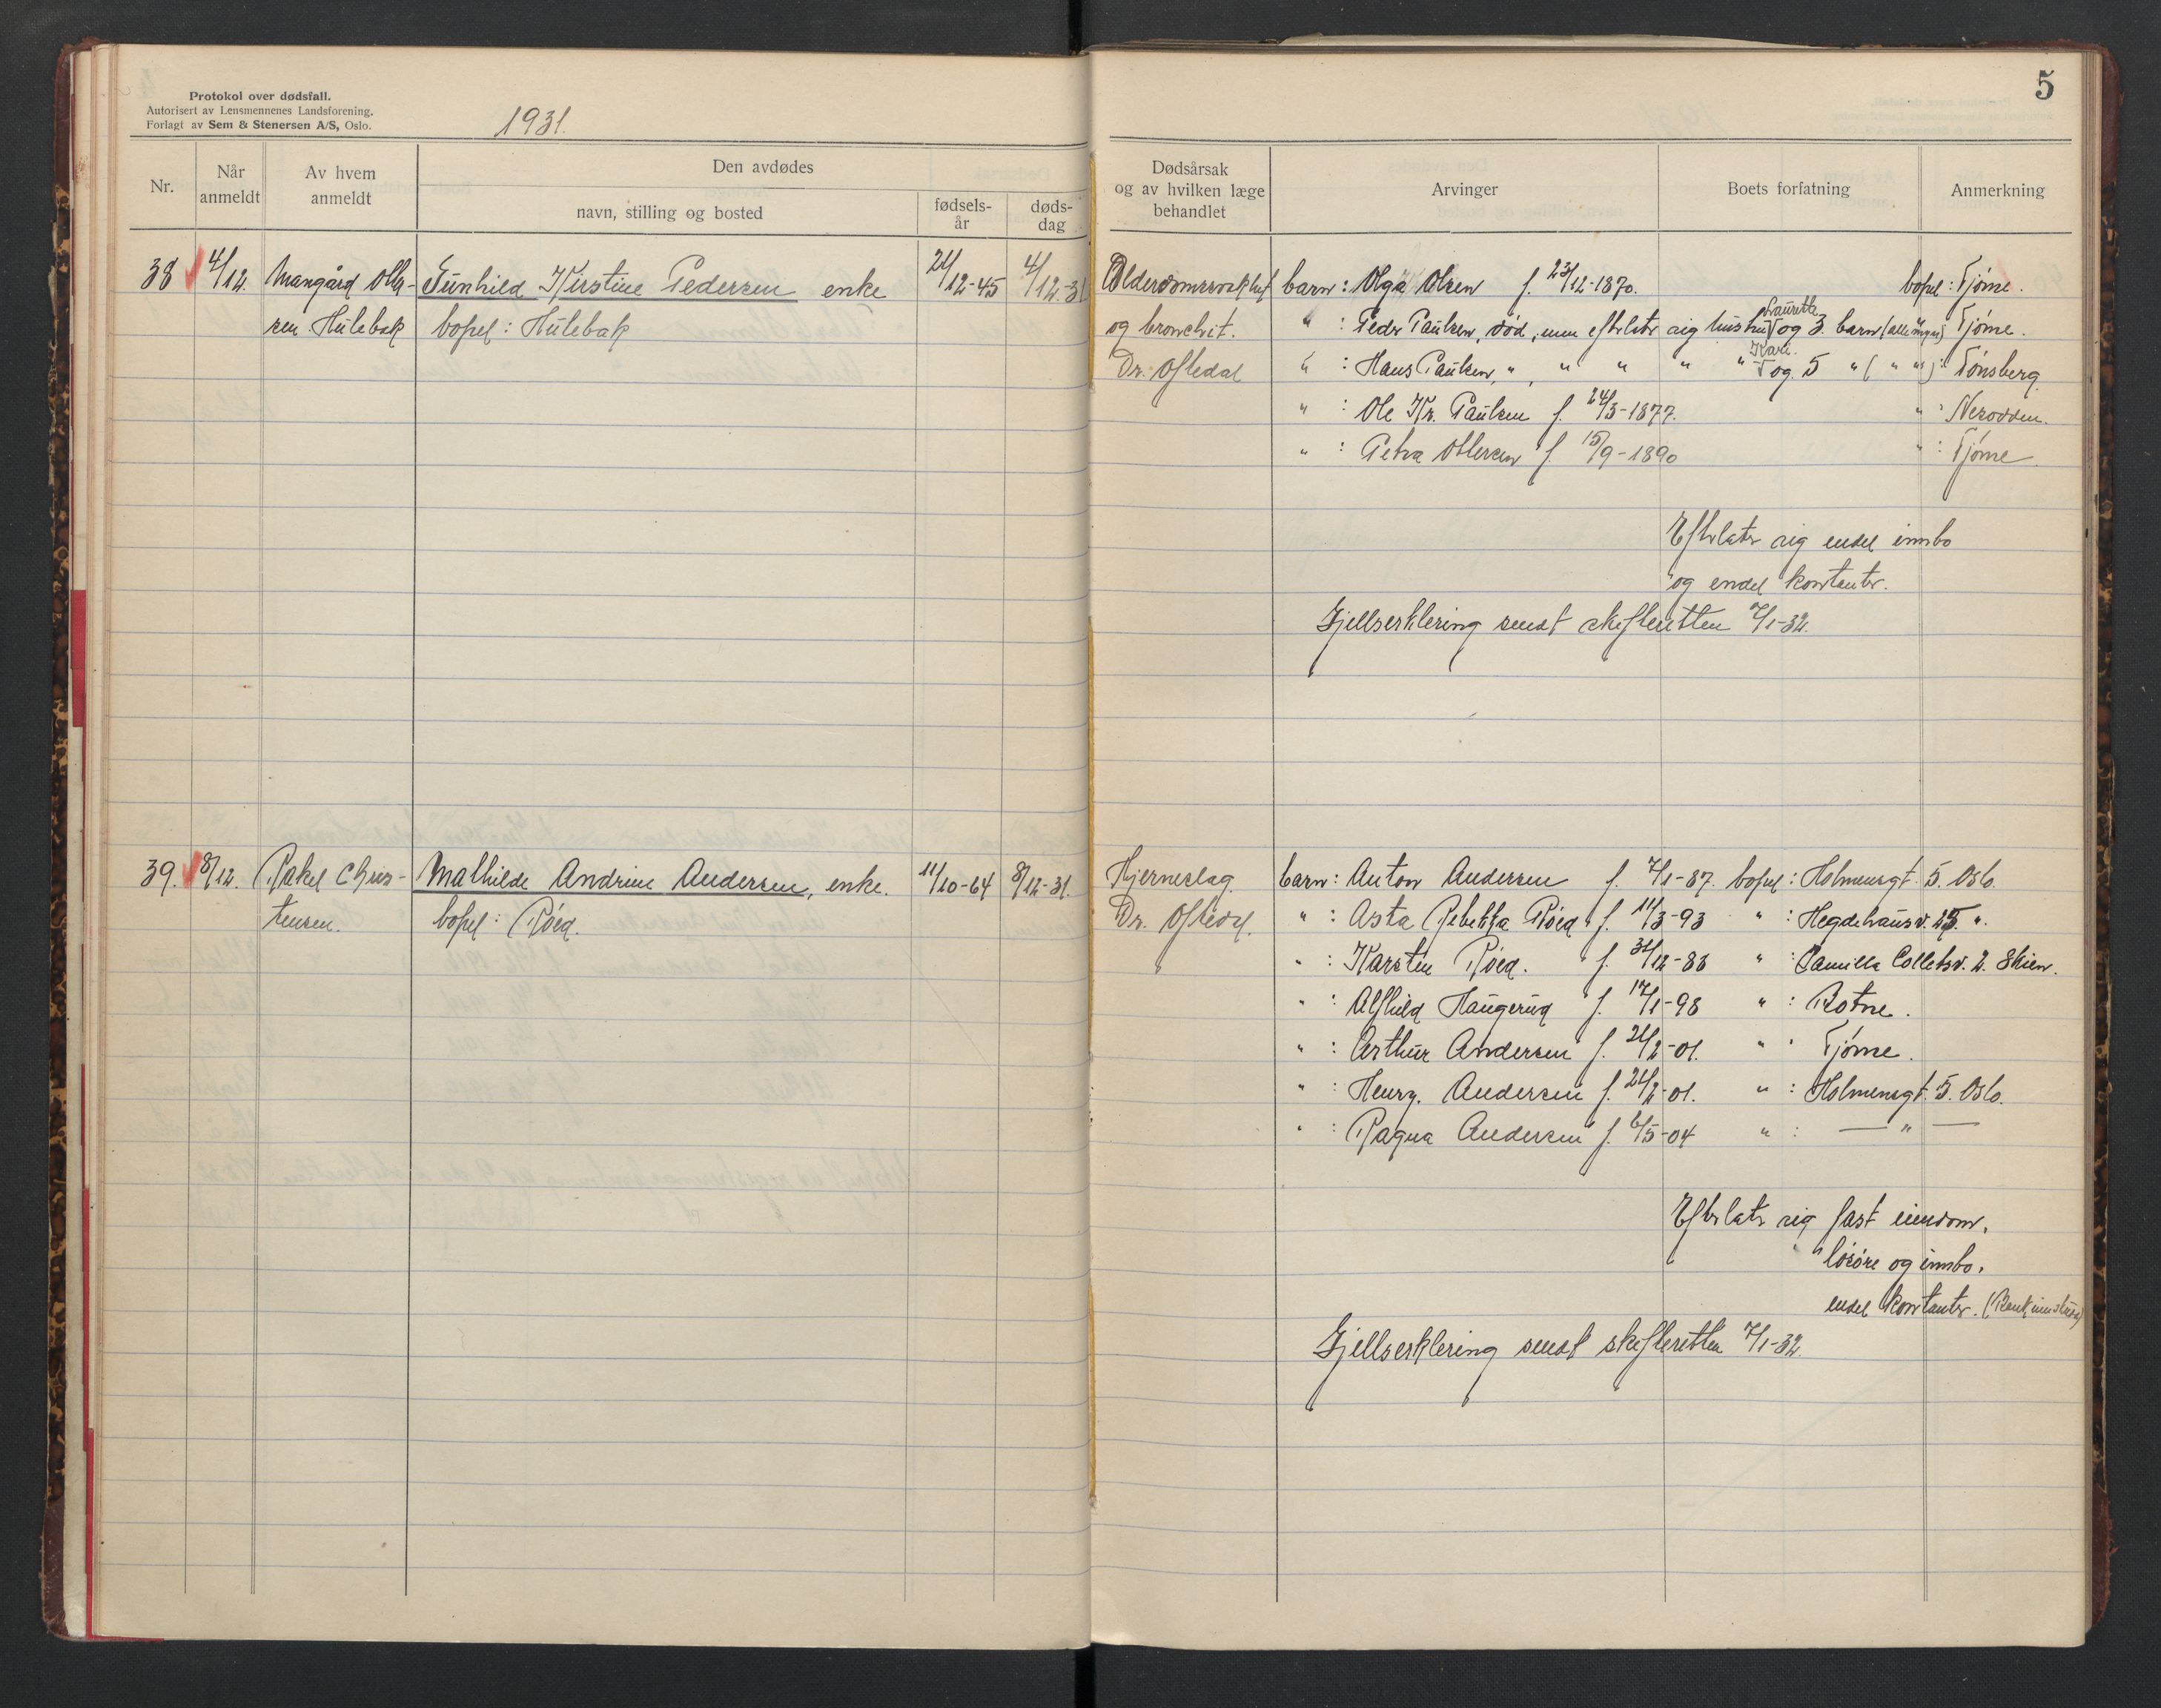 Protokol over dødsfall.
Autorisert av Lensmennenes Landsforening.
Forlagt av Sem & Stenersen A/S, Oslo.
1931.
5
Nr.
Når anmeldt
Av hvem anmeldt
Den avdødes
navn, stilling og bosted
fødselsår
dødsdag
Dødsårsak og av hvilken læge behandlet
Arvinger
Boets forfatning
Anmerkning
38 4/12. Mangård Oller- Gunhild Kirstine Pedersen enke 21/12-45 4/12-31
sen Hulebak bopel: Hulebak
Alderdomssvakhet barn: Olga Olsen f. 23/12-1870. bopel: Tjøme.
Laurette
og bronchit. " : Peder Paulsen, død, men efterlater sig hustru og 3 barn (alle myn) Tjøme.
Kari.
Dr. Oftedal " : Hans Paulsen, " , " " " " og 5 " ( " " ) : Tønsberg.
" : Ole Kr. Paulsen f. 24/3-1877. " : Nesodden.
" : Petra Ollersen f. 15/9-1890 " : Tjøme
Efterlater sig endel innbo
og endel kontanter.
Gjellserklering sendt skifteretten 7/1-32.
39. 8/12. Rakel Chris- Mathilde Andrine Andersen, enke. 11/10-64 8/12-31.
tensen. bopel: Røed.
Hjerneslag barn: Anton Andersen f. 7/1-87. bopel: Holmensgt. 5. Oslo.
Dr. Oftedal. " : Asta Rebekka Røed f. 11/3-93 " : Hegdehausv. 25 ".
" " : Karsten Røed. f. 31/12-88 " : Camilla Colletsv. 2. Skien.
" : Alfhild Haugerud f. 17/1-98 " : Botne.
" : Arthur Andersen f. 21/2-01. " : Tjøme.
" : Henry. Andersen f. 21/2-01. " : Holmensgt. 5. Oslo.
" : Ragna Andersen f. 6/5-04 " : — " —
Efterlater sig fast eiendom,
løsøre og innbo,
endel kontanter. (Bankinnskudd)
Gjellserklering sendt skifteretten 7/1-32.